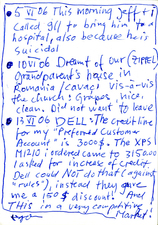 5 VI 06 This morning Jeff + I
called 911 to bring him to a
hospital, also because he is
suicidal
10 VI 06 Dreamt of our (ZIPFEL)
Grandparent's house in
Romania (cavac) vis-a-vis
the church: Grapes, nice,
clean. Did not want to leave
13 VI 06 DELL: The credit line
for my "Preferred Customer
Account" is 3000$. The XPS
M1210 i ordered came to 3150$
I asked for increase of credit.
Dell could NOT do that (against
"rules"), instead they gave
me a 150$ discount! And
THIS in a very competitive
Market!